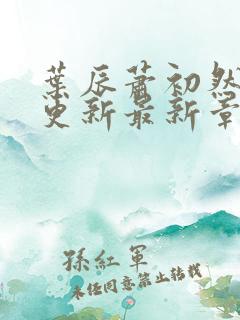 葉辰蕭初然
更新最新章
孫紅軍
未任同意禁止转载